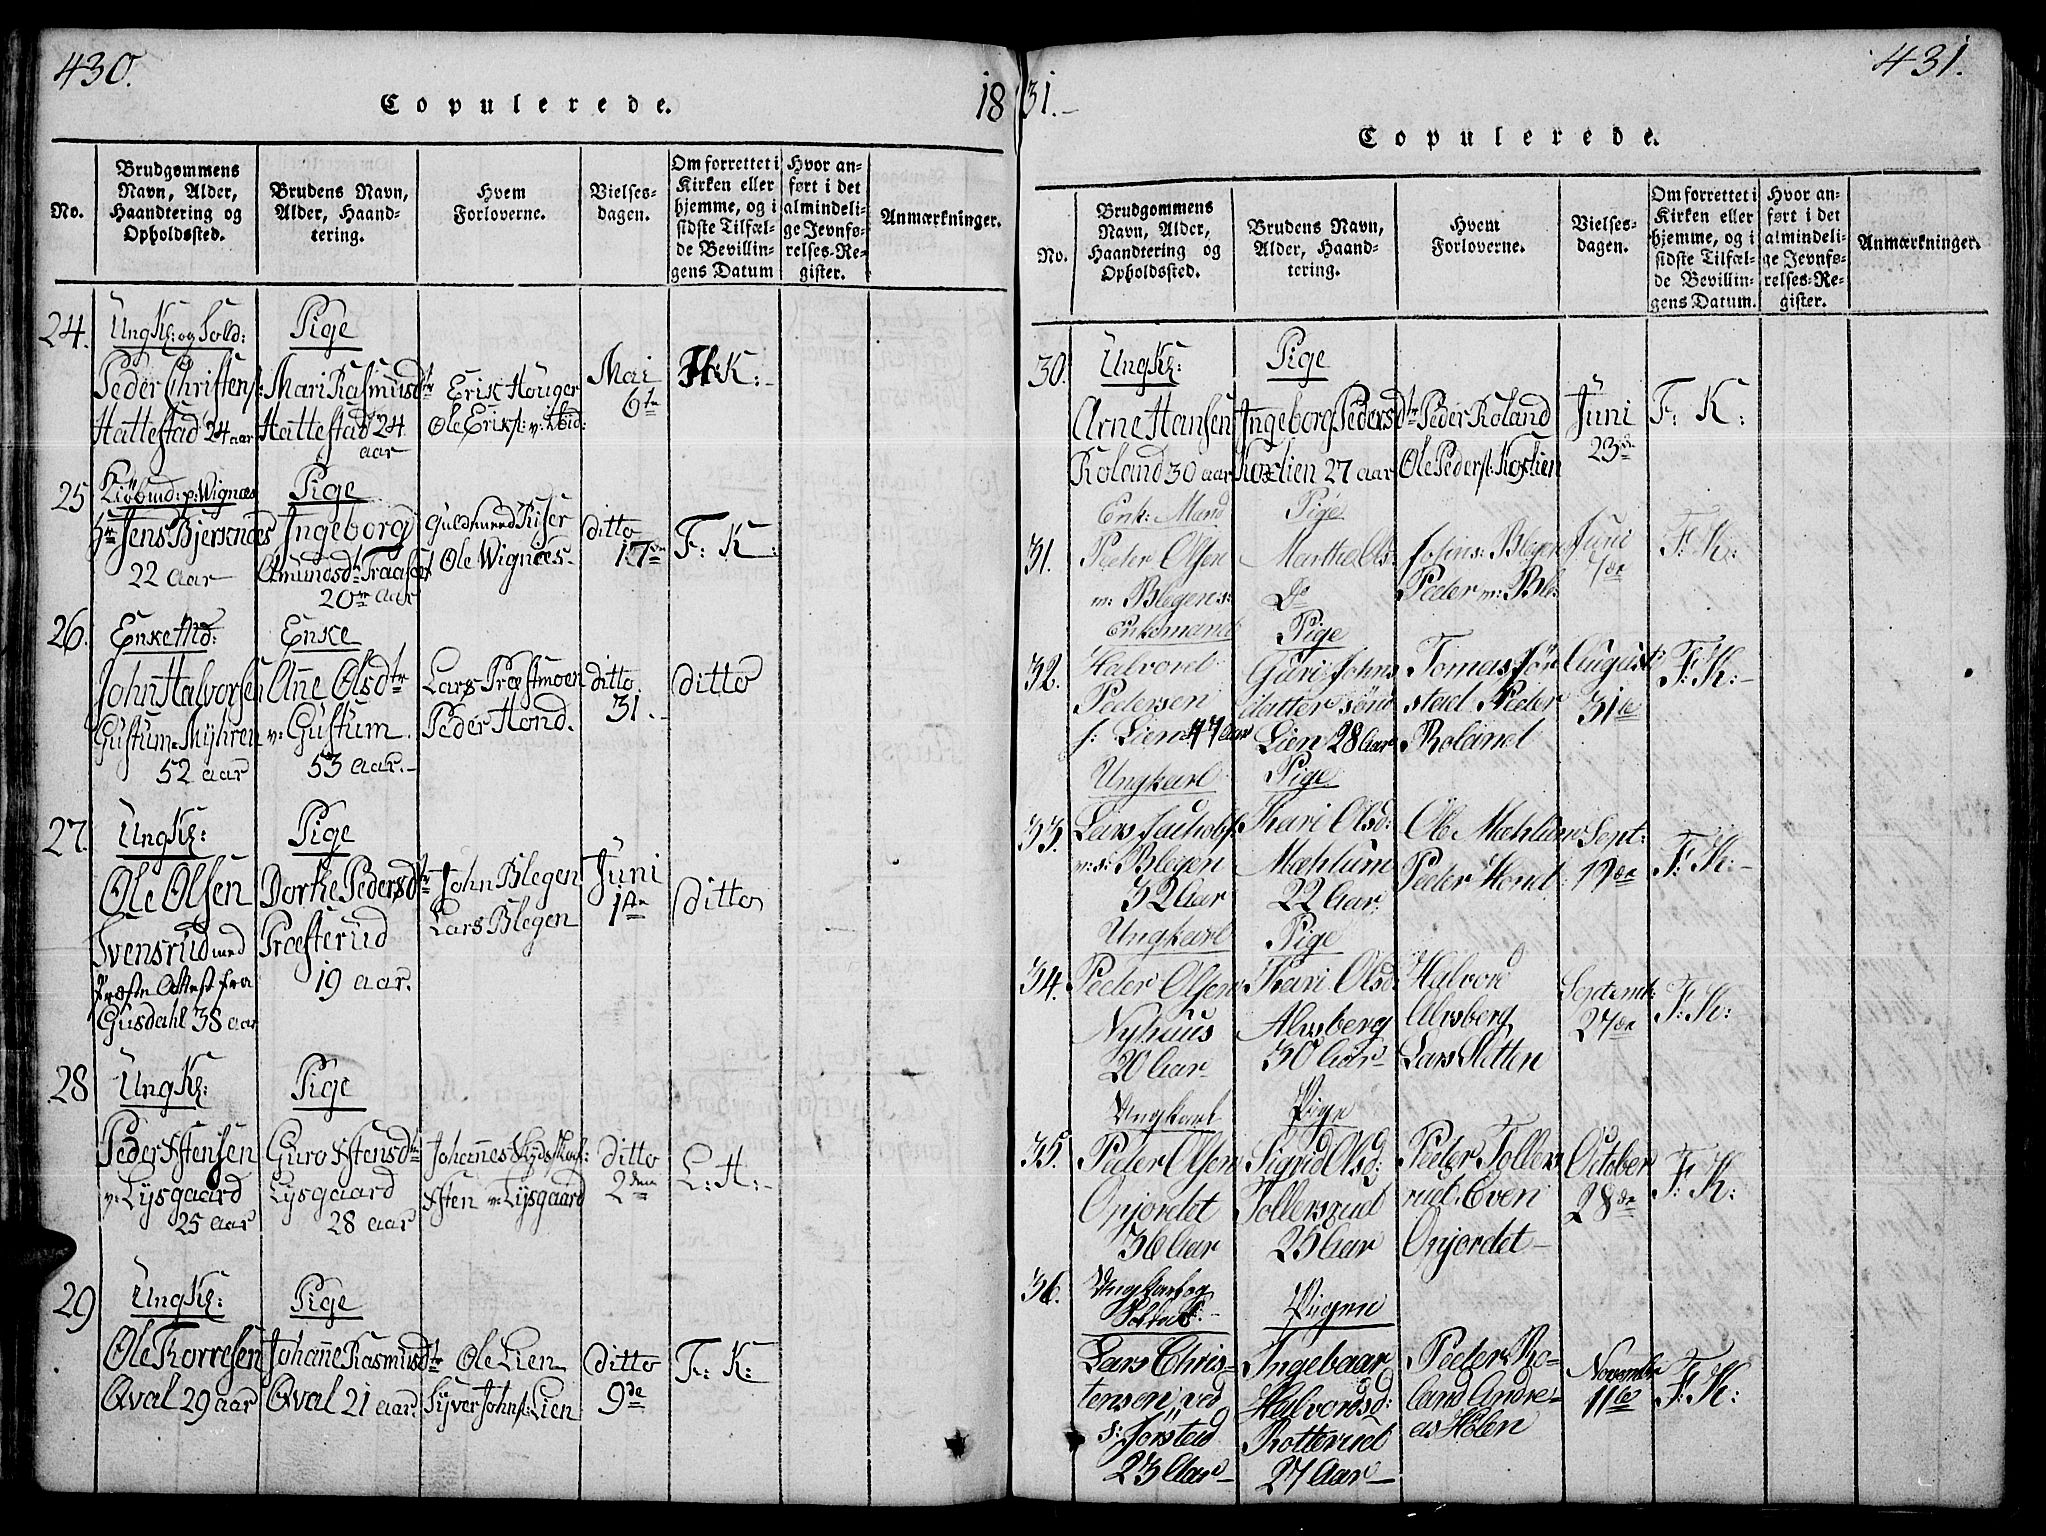 430.
Copulerede.
18
No.
Brudgommens Navn, Alder, Haandtering og Opholdssted.
Brudens Navn, Alder, Haandtering.
Hvem Forloverne.
Vielsesdagen.
Om forrettet i Kirken eller hjemme, og i sidste Tilfælde Bevillingens Datum
Hvor anført i det almindelige Jevnførelses-Register.
Anmærkninger.
24.
UngK: og Sold:
Peder Christens:
Hattestad 24 aar
Pige
Mari Rasmusdtr
Hattestad 24
aar
Erik Houger
Ole Eriks: v: ibid:
Mai
6te
F: K:
25
Kiöbmd: p: Wignæs
Hr Jens Bjerknæs
22 aar
Pige
Ingeborg
Amundsd: Traaset
20 aar
Guldsmed Riser
Ole Wignæs.
ditto
17de
F: K:
26.
Enke Md:
John Halvorsen
Gustum-Myhren
52 aar
Enke
Ane Olsdtr
v: Gustum.
53 aar.
Lars Præstmoen
Peder Hond.
ditto
31.
ditto
27.
UngK:
Ole Olsen
Svensrud med
Præste Attest fra
Gusdahl 38 aar
Pige
Dorke Pedersdtr
Præsterud
19 aar.
John Blegen
Lars Blegen
Juni
1ste
ditto
28
UngK:
Peder Stensen
v: Lysgaard
25 aar
Pige
Guro Stensdtr
Lysgaard
28 aar
Johannes
Sten v: Lysgaard
ditto
2den
L: H:
29
UngK:
Ole Torresen
Qval 29 aar
Pige
Johanne Rasmusdtr
Qval 21 aar.
Ole Lien
Syver Johns: Lien
ditto
9de
F: K:
31.
431.
Copulerede.
No.
Brudgommens Navn, Alder, Haandtering og Opholdssted.
Brudens Navn, Alder, Haandtering.
Hvem Forloverne.
Vielsesdagen.
Om forrettet i Kirken eller hjemme, og i sidste Tilfælde Bevillingens Datum.
Hvor anført i det almindelige Jevnførelses-Register.
Anmærkninger.
30.
UngK:
Arne Hansen
Roland 30 aar
Pige
Ingeborg Pedersdtr
Koslien 27 aar
Peder Roland
Ole Peders: Koslien
Juni
23de
F: K:
31.
Enk: Mand
Peder Olsen
m: Blegens:
Pige
Marthe Ols
Do
Johns: Blegen
Peder m: Ble:
Juni
7de
F: K:
32.
Enkemand
Halvord
Pedersen
s: Lien 47 Aar
Pige
Guri Johns
datter sönd
Lien 28 Aar
Tomas Jör
stad Peder
Roland
August
31te
F: K:
33.
Ungkarl
Lars
v: s: Blegen
32 Aar
Pige
Kari Olsd:
Mæhlum
22 Aar.
Ole Mæhlum
Peder Hond
Sept:
19de
F: K:
34.
Ungkarl
Peder Olsen
Nyhuus
20 Aar
Pige
Kari Olsd
Alvsberg
30 Aar
Halvor
Alvsberg
Lars Sletten
Septemb:
27de
F: K:
35.
Ungkarl
Peder Olsen
Onjordet
36 Aar
Pige
Sigrid Olsd:
Tollersrud
25 Aar
Peder Tollers
rud. Even
Onjordet
October
28de
F: K:
36.
Ungkarl og
Soldat.
Lars Chris-
tensen ved
s: Jorstad
23 Aar
Pigen
Ingebaar
Halvordsd:
Rotterud
27 Aar
Peder Ro-
land Andre-
as Holen
November
11te
F: K: